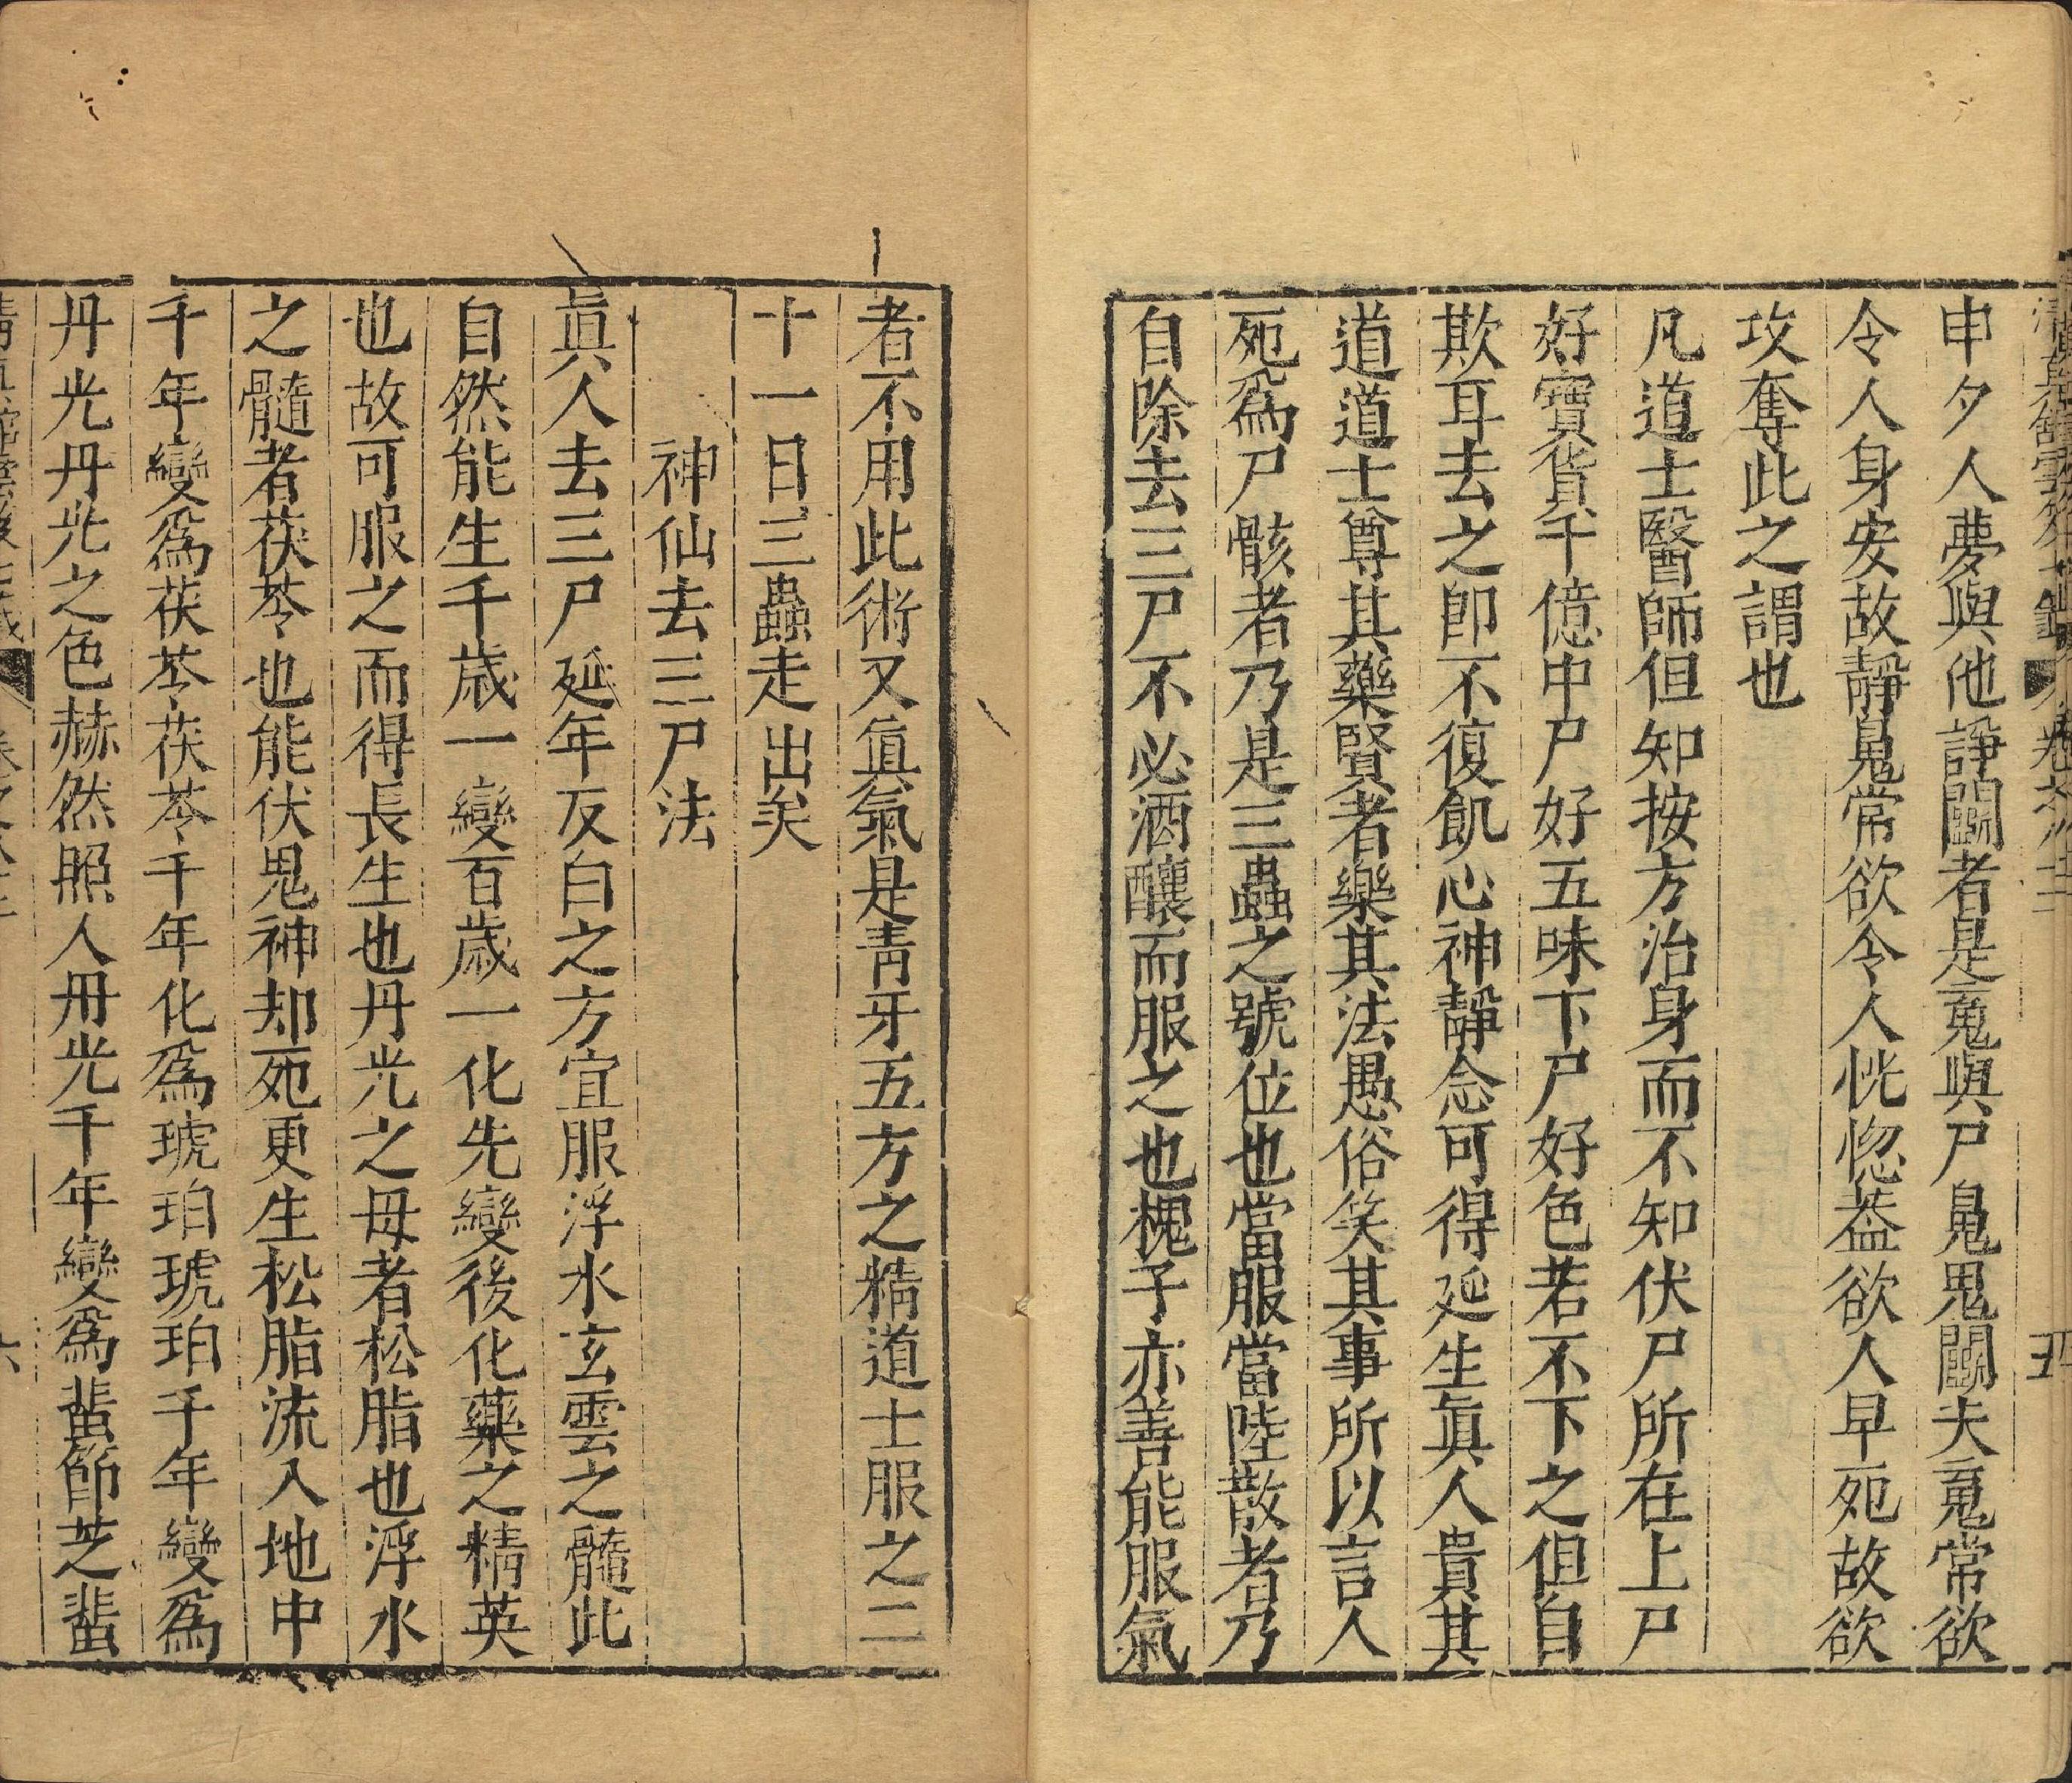 申夕人夢與他諍鬭者是䰟與尸鬼鬼鬭夫䰟常欲
令人身安故靜鬼常欲令人恍惚葢欲人早死故欲
攻奪此之謂也
凡道士醫師但知按方治身而不知伏尸所在上尸
好寶貨千億中尸好五味下尸好色若不下之但自
欺耳去之即不復飢心神靜念可得延生眞人貴其
道道士尊其藥賢者樂其法愚俗笑其事所以言人
死爲尸骸者乃是三蟲之號位也當服當陸散者乃
自除去三尸不必酒釀而服之也槐子亦善能服氣
者不用此術又眞氣是青牙五方之精道士服之二
十一日三蟲走出矣
神仙去三尸法
眞人去三尸延年反白之方宜服浮水玄雲之髓此
自然能生千歲一變百歲一化先變後化藥之精英
也故可服之而得長生也丹光之母者松脂也浮水
之髓者茯苓也能伏鬼神却死更生松脂流入地中
千年變爲茯苓茯苓千年化爲琥珀琥珀千年變爲
丹光丹光之色赫然照人丹光千年變爲蜚節芝蜚